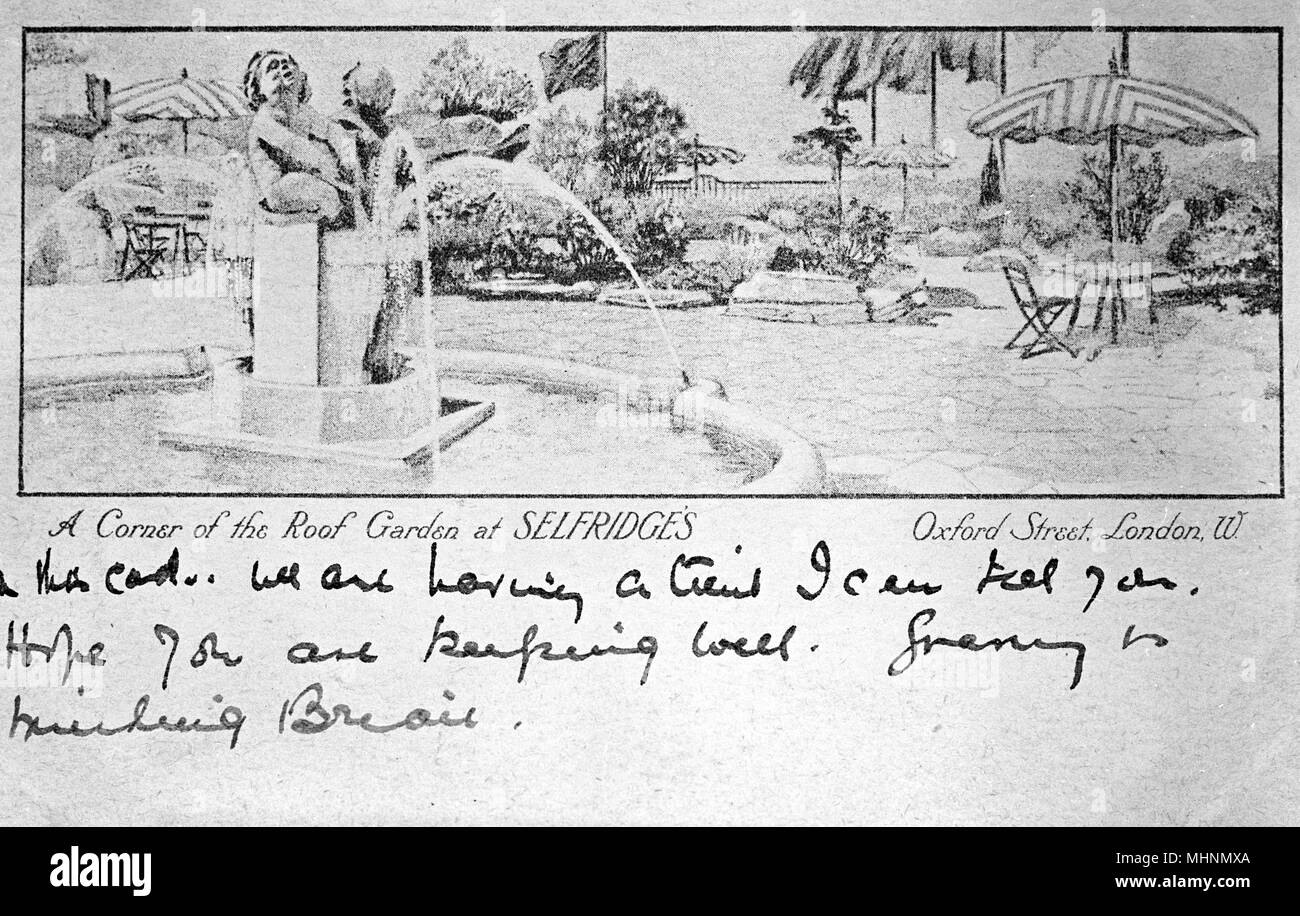 A Corner of the Roof Garden at SELFRIDGE'S Oxford Street, London, W.
this card.. we are having a time I can tell you.
Hope you are keeping well. Granny is
minding Brian.
alamy
Image ID: MHNMXA
www.alamy.com